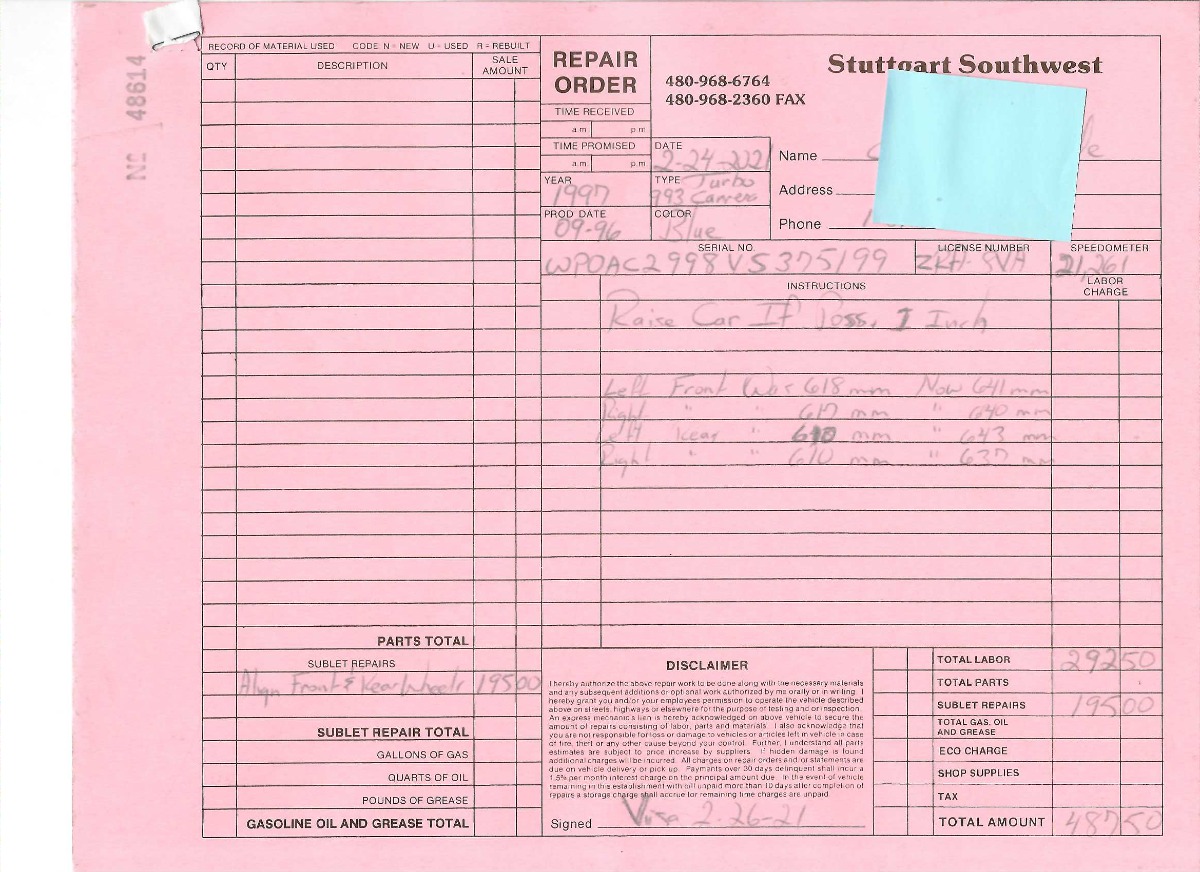 Nº 48614
RECORD OF MATERIAL USED CODE: N = NEW U = USED R = REBUILT
QTY DESCRIPTION SALE AMOUNT
REPAIR ORDER
Stuttgart Southwest
480-968-6764
480-968-2360 FAX
TIME RECEIVED
am pm
TIME PROMISED
am pm
DATE 2-24-2021
Name
YEAR 1997
TYPE Turbo 993 Carrera
Address
PROD DATE 09-96
COLOR Blue
Phone
SERIAL NO. WPOAC2998VS375199
LICENSE NUMBER
SPEEDOMETER 21,261
INSTRUCTIONS
LABOR CHARGE
Raise Car If Poss. 1 Inch
Left Front Was 618 mm Now 641 mm
Right " " 617 mm " 640 mm
Left Rear " 610 mm " 643 mm
Right " " 610 mm " 637 mm
PARTS TOTAL
SUBLET REPAIRS
Align Front & Rear Wheels 195 00
SUBLET REPAIR TOTAL
GALLONS OF GAS
QUARTS OF OIL
POUNDS OF GREASE
GASOLINE OIL AND GREASE TOTAL
DISCLAIMER
I hereby authorize the above repair work to be done along with the necessary materials
and any subsequent additions or optional work authorized by me orally or in writing. I
hereby grant you and/or your employees permission to operate the vehicle described
above on streets, highways or elsewhere for the purpose of testing and/or inspection.
An express mechanics lien is hereby acknowledged on above vehicle to secure the
amount of repairs consisting of labor, parts and materials. I also acknowledge that
you are not responsible for loss or damage to vehicles or articles left in vehicle in case
of fire, theft or any other cause beyond your control. Further, I understand all parts
estimates are subject to price increase by suppliers. If hidden damage is found
additional charges will be incurred. All charges on repair orders and/or statements are
due on vehicle delivery or pick up. Payments over 30 days delinquent shall incur a
1.5% per month interest charge on the principal amount due. In the event of vehicle
remaining in this establishment with bill unpaid more than 10 days after completion of
repairs a storage charge shall accrue for remaining time charges are unpaid.
Signed Visa 2-26-21
TOTAL LABOR 292 50
TOTAL PARTS
SUBLET REPAIRS 195 00
TOTAL GAS, OIL AND GREASE
ECO CHARGE
SHOP SUPPLIES
TAX
TOTAL AMOUNT 487 50